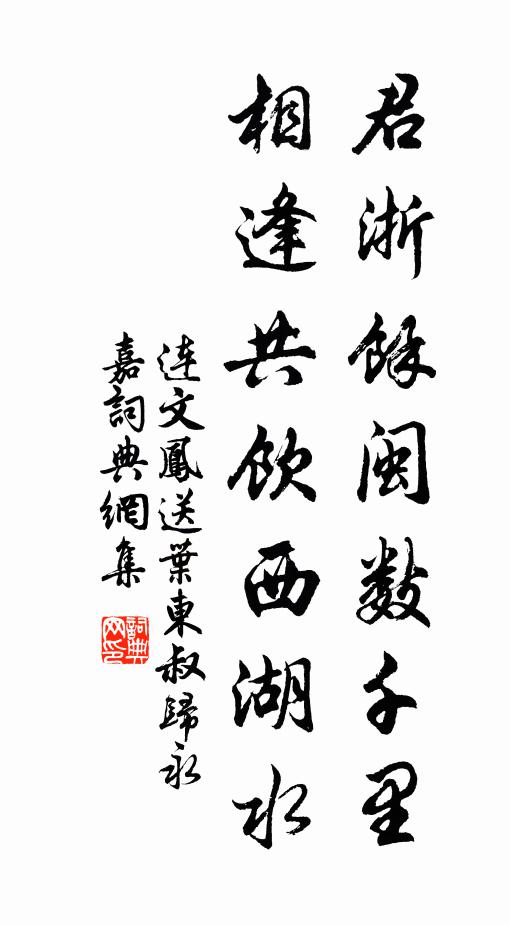 君浙餘閩數千里
相逢共飲西湖水
連文鳳送葉東叔歸永
嘉詞典網集
詞典网印